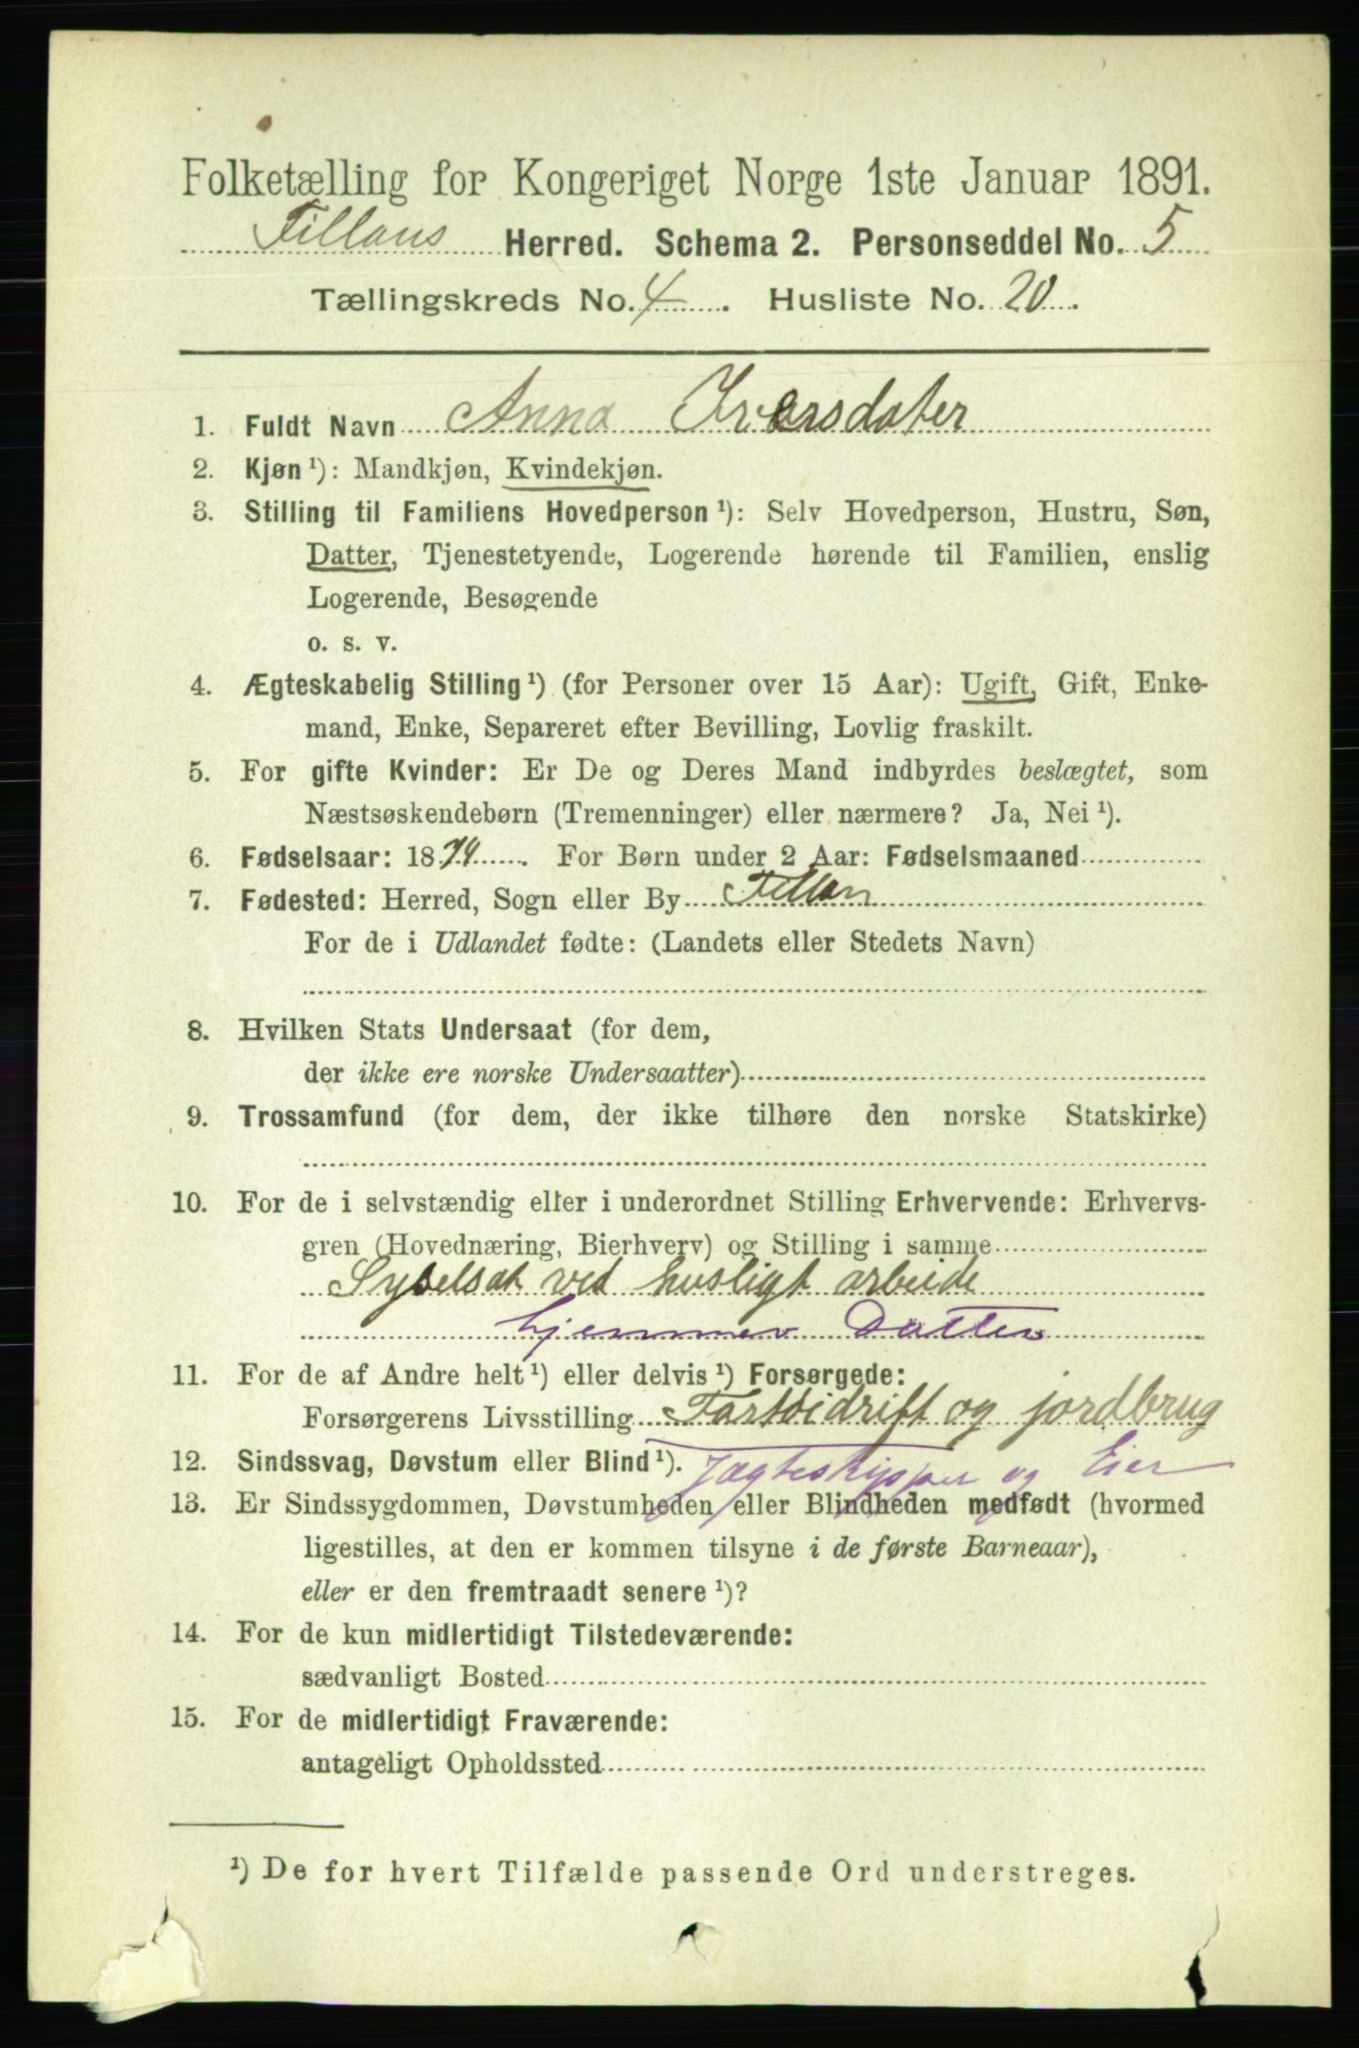 Folketælling for Kongeriget Norge 1ste Januar 1891.
Fillans Herred. Schema 2. Personseddel No. 5
Tællingskreds No. 4. Husliste No. 20.
1. Fuldt Navn Anna Iversdater
2. Kjøn ¹): Mandkjøn, Kvindekjøn.
3. Stilling til Familiens Hovedperson ¹): Selv Hovedperson, Hustru, Søn,
Datter, Tjenestetyende, Logerende hørende til Familien, enslig
Logerende, Besøgende
o. s. v.
4. Ægteskabelig Stilling ¹) (for Personer over 15 Aar): Ugift, Gift, Enke-
mand, Enke, Separeret efter Bevilling, Lovlig fraskilt.
5. For gifte Kvinder: Er De og Deres Mand indbyrdes beslægtet, som
Næstsøskendebørn (Tremenninger) eller nærmere? Ja, Nei ¹).
6. Fødselsaar: 1874. For Børn under 2 Aar: Fødselsmaaned
7. Fødested: Herred, Sogn eller By Fillan
For de i Udlandet fødte: (Landets eller Stedets Navn)
8. Hvilken Stats Undersaat (for dem,
der ikke ere norske Undersaatter)
9. Trossamfund (for dem, der ikke tilhøre den norske Statskirke)
10. For de i selvstændig eller i underordnet Stilling Erhvervende: Erhvervs-
gren (Hovednæring, Bierhverv) og Stilling i samme
Sysselsat ved husligt arbeide
hjemmev Datter
11. For de af Andre helt ¹) eller delvis ¹) Forsørgede:
Forsørgerens Livsstilling Fartøidrift og jordbrug
12. Sindssvag, Døvstum eller Blind ¹). Jægteskipper og Eier
13. Er Sindssygdommen, Døvstumheden eller Blindheden medfødt (hvormed
ligestilles, at den er kommen tilsyne i de første Barneaar),
eller er den fremtraadt senere ¹)?
14. For de kun midlertidigt Tilstedeværende:
sædvanligt Bosted
15. For de midlertidigt Fraværende:
antageligt Opholdssted
¹) De for hvert Tilfælde passende Ord understreges.